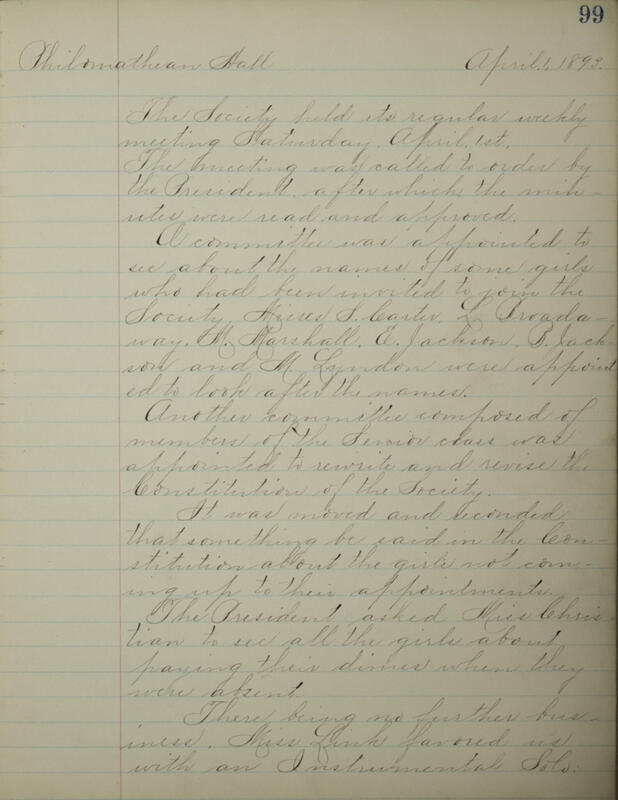 99
Philomathean Hall April, 1, 1893.
The Society held its regular weekly
meeting Saturday, April, 1st.
The meeting was called to order by
the President, after which, the min-
utes were read and approved.
A committee was appointed to
see about the names of some girls
who had been invited to join the
Society. Misses S. Carter, L. Broada-
way, M. Marshall, E. Jackson, B. Jack-
son and M. Lyndon were appoint
ed to look after the names.
Another committee composed of
members of the Senior class was
appointed to rewrite and revise the
Constitution of the Society.
It was moved and seconded
that something be said in the Con-
stitution about the girls not com-
ing up to their appointments.
The President asked Miss Chris-
tian to see all the girls about
paying their dimes when they
were absent.
There being no further bus-
iness, Miss Link favored us
with an Instrumental Solo.